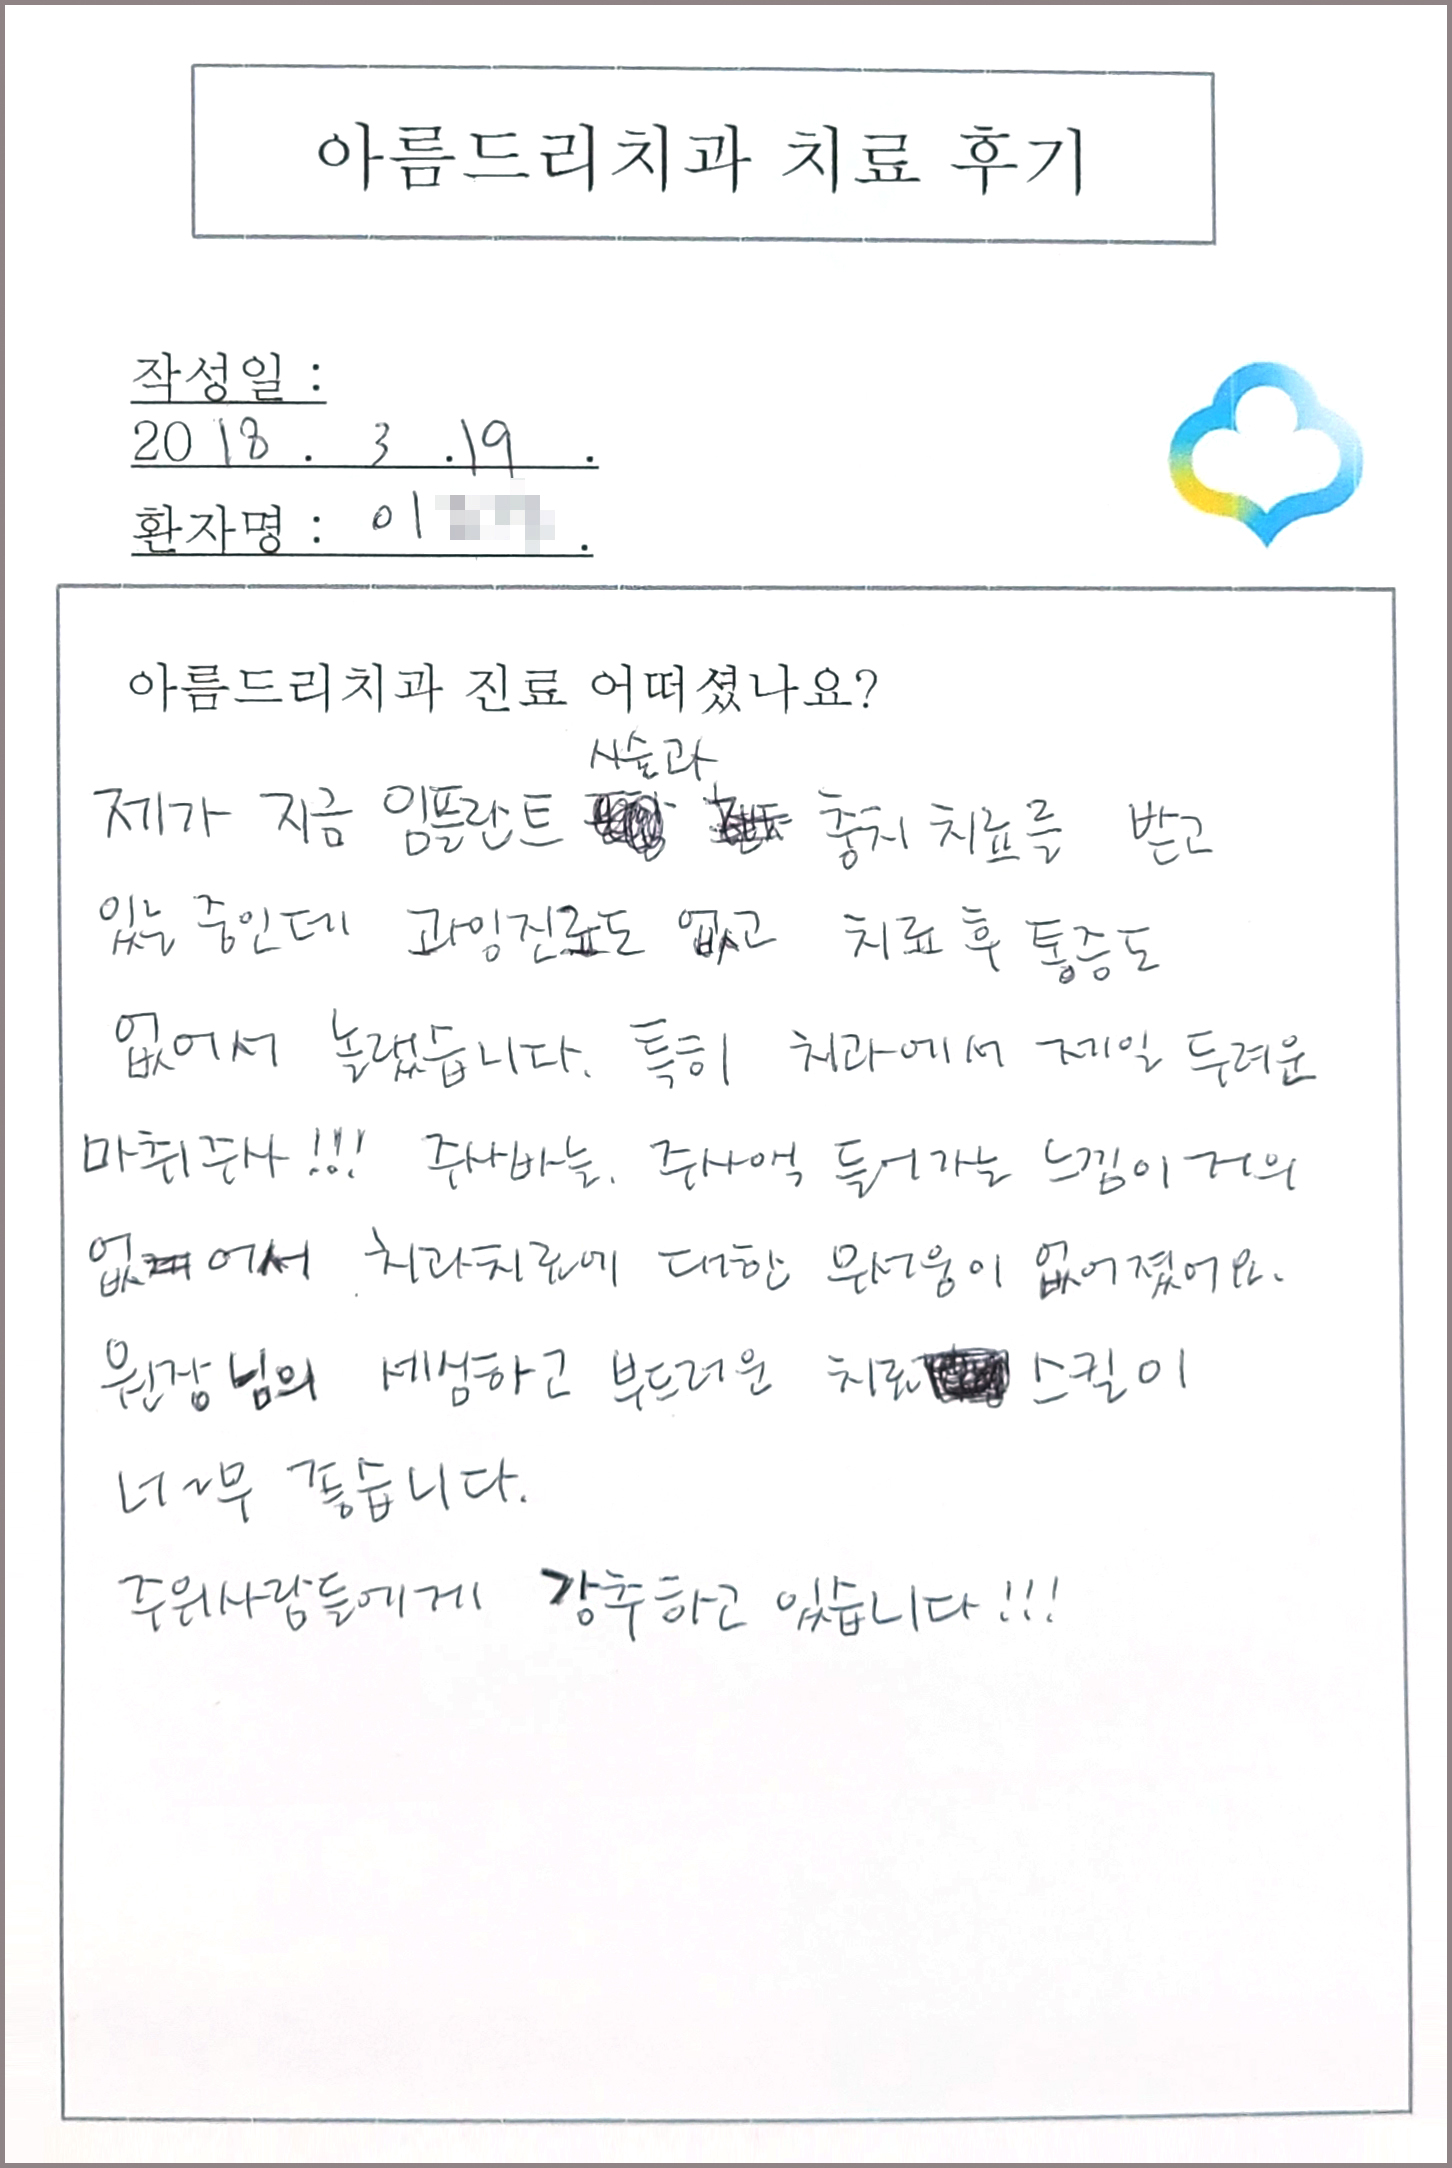 아름드리치과 치료 후기
작성일 :
2018 . 3 .19 .
환자명 : 이 .
아름드리치과 진료 어떠셨나요?
시술과
제가 지금 임플란트 충치 치료를 받고
있는 중인데 과잉진료도 없고 치료 후 통증도
없어서 놀랬습니다. 특히 치과에서 제일 두려운
마취주사!!! 주사바늘, 주사액 들어가는 느낌이 거의
없어서 치과치료에 대한 무서움이 없어졌어요.
원장님의 세심하고 부드러운 치료 스킬이
너~무 좋습니다.
주위사람들에게 강추하고 있습니다!!!